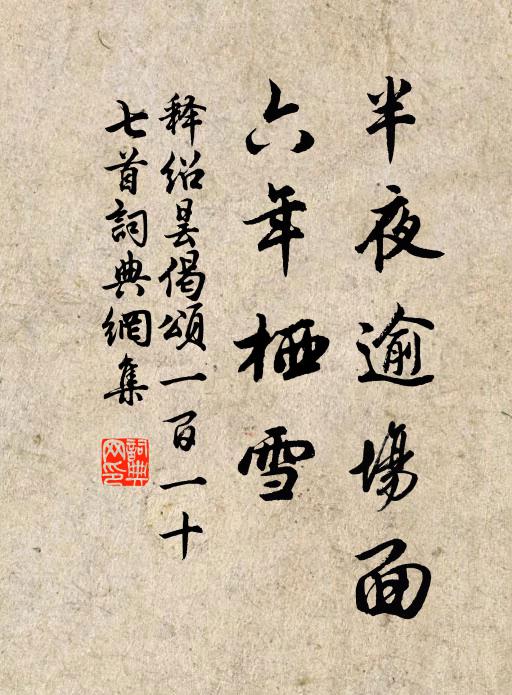 半夜逾場面
六年栖雪
释绍昙偈頌一百一十
七首詞典網集
詞典网印